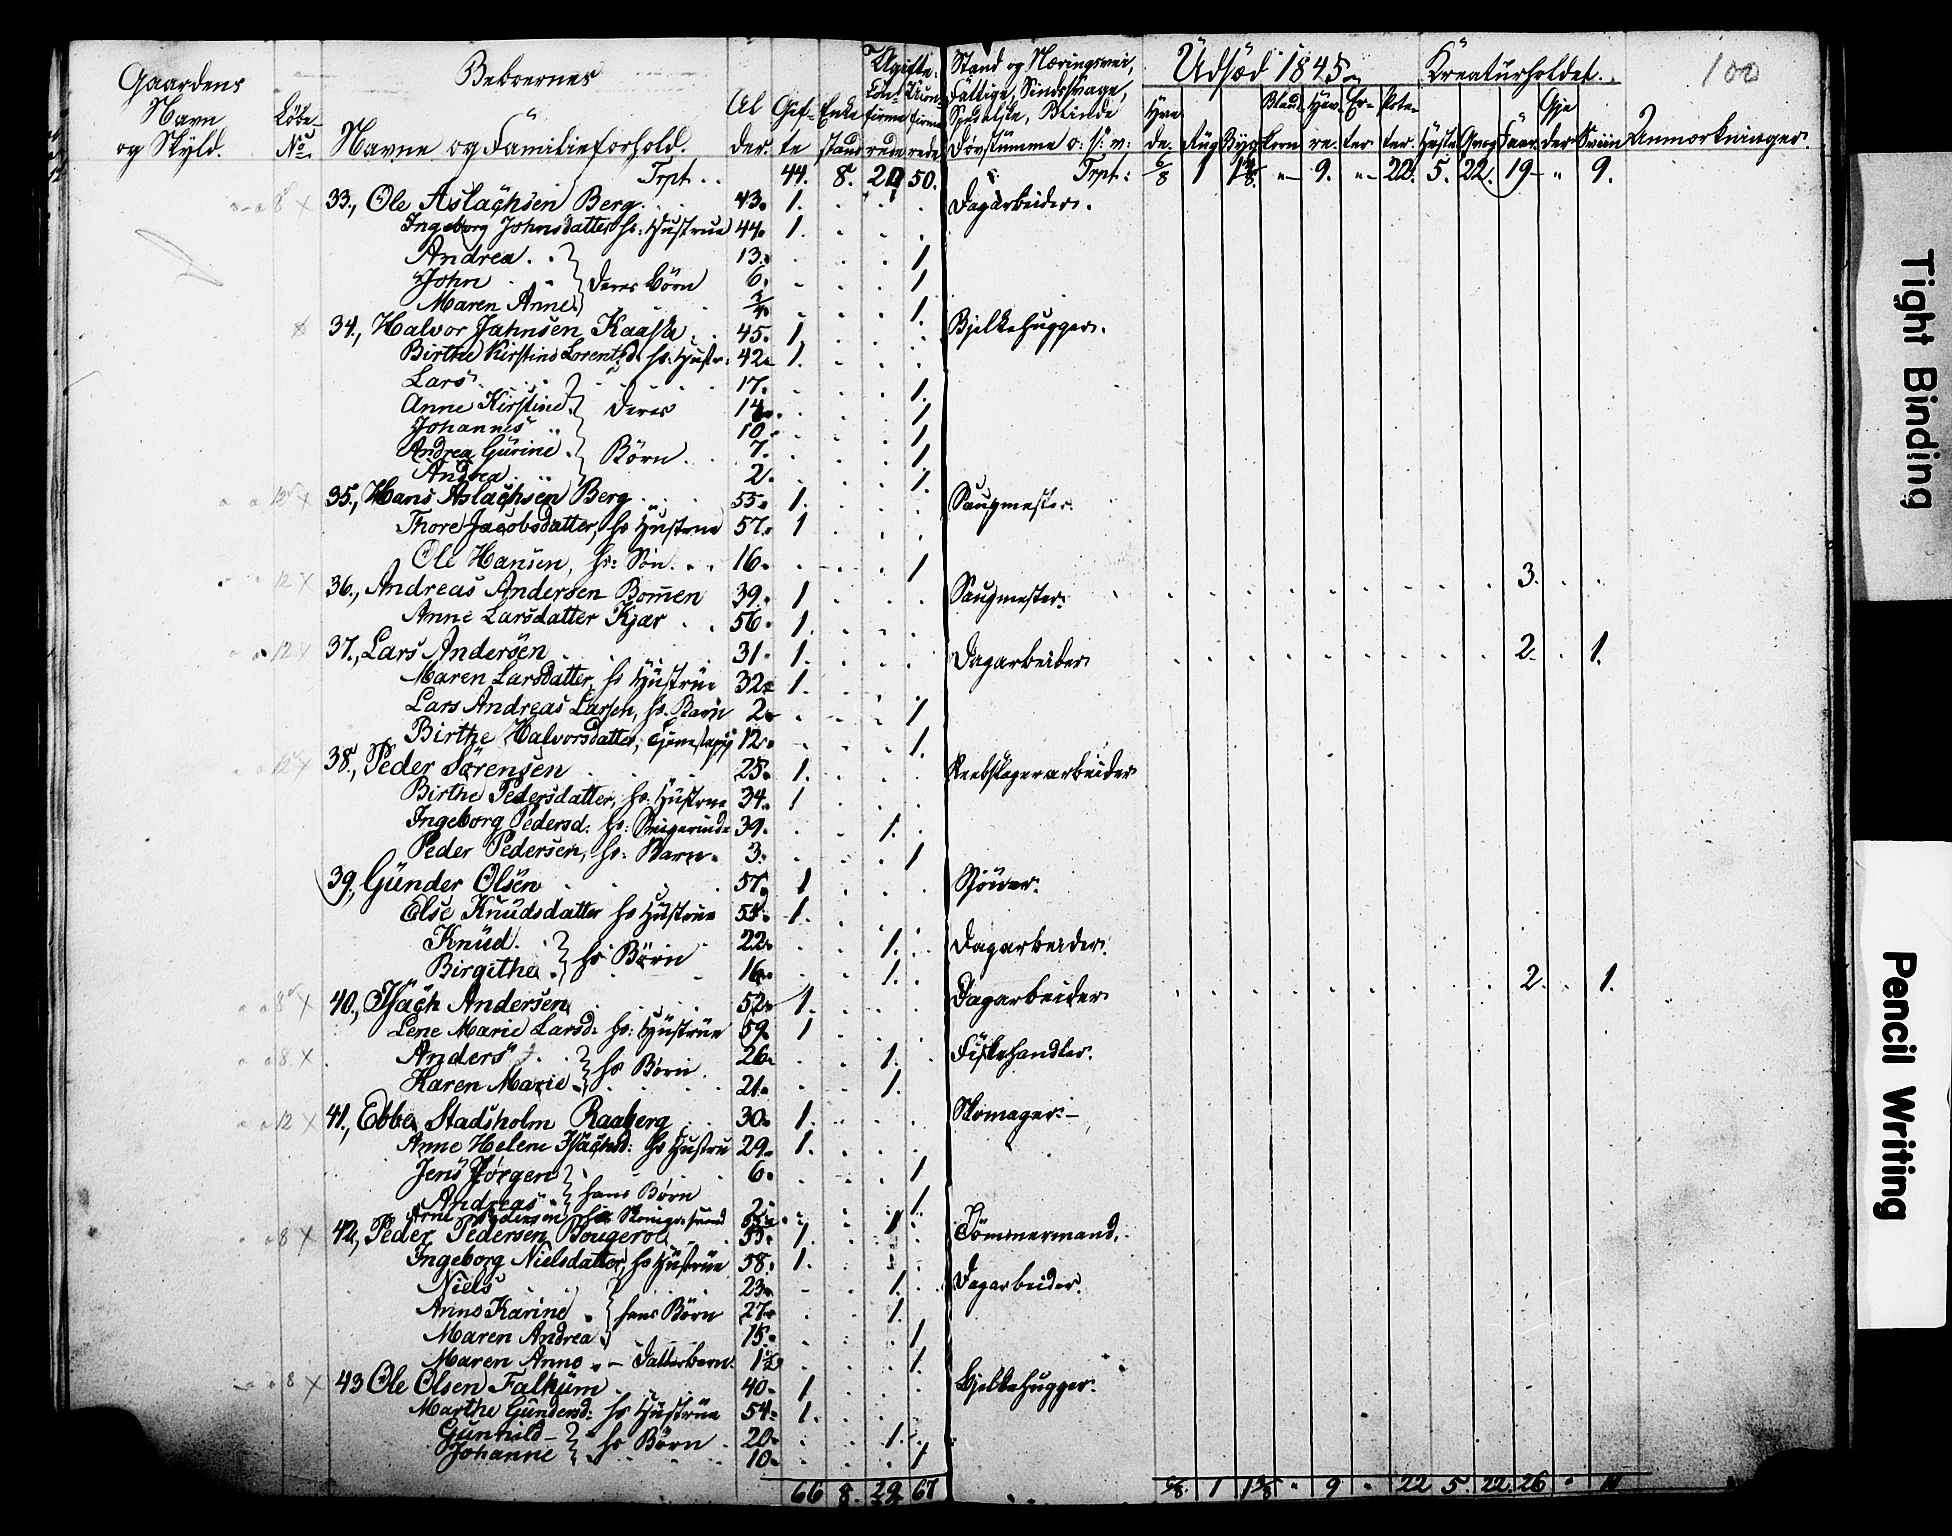 Gaardens Navn og Skyld. | Løbe No | Beboernes Navne og Familieforhold. | Alder. | Gifte | Enkestand | Ugifte: Confirmerede | Uconfirmerede | Stand og Næringsvei, Fattige, Sindssvage, Spedalske, Blinde Døvstumme o: s: v: | Udsæd 1845 | Hvede. | Rug | Byg | Bland Korn | Havre. | Erter. | Poteter. | Kreaturholdet. | Heste | Faar | Gjeder | Sviin | Anmærkninger. | 100
Trpt. . . 44. 8. 29 50. Trpt: 6/8 1 9. 22. 5. 22. 19 " 9.
8 x 33., Ole Aslachsen Berg. 43. 1. Dagarbeider.
Ingeborg Johnsdatter hs: Hustrue 44. 1.
Andrea. 13. 1
John } deres Børn 6. 1
Maren Anne 1.
x 34., Halvor Jahnsen Kaasa 45. 1. Bjelkehugger.
Birthe Kirstine Lorentsd: hs: Hustr: 42. 1.
Lars 17. 1.
Anne Kirstine } deres 14. 1
Johannes 10. 1
Andrea Gurine } Børn. 7. 1.
Andrea 2. 1.
12 x 35., Hans Aslachsen Berg. 55. 1. Saugmester.
Thore Jacobsdatter, hs Hustrue 57. 1
Ole Hansen, hs: Søn. 16. 1
12 x 36., Andreas Andersen Bommen 39. 1 Saugmester. 3.
Anne Larsdatter Kjær 56. 1.
12 x 37., Lars Andersen 31. 1. Dagarbeider 2. 1.
Maren Larsdatter, hs Hustrue 32. 1.
Lars Andreas Larsen, hs. Barn 2. 1
Birthe Halvorsdatter, 12. 1.
12 x 38., Peder Sørensen 25. 1. Reebslagerarbeider
Birthe Pedersdatter, hs: Hustrue 34. 1
Ingeborg Pedersd: hs: Svigerinde 39. 1.
Peder Pedersen, hs: Barn. 3. 1
39., Gunder Olsen 57. 1
Else Knudsdatter hs Hustrue 54. 1.
Knud. 22. 1. Dagarbeider.
Birgithe } hs Børn 16. 1.
8 x 40., Isach Andersen 52. 1. Dagarbeider 2. 1.
Lene Marie Larsd: hs: Hustrue 59. 1
8 x Anders 26. 1. Fiskehandler.
Karen Marie } hs Børn. 21. 1.
12 x 41., Ebbe Stadsholm Raaberg 30. 1. Skomager.
Anne Helene Isachsd: hs Hustru 29. 1.
Jens Jørgen 6. 1
Andreas } hans Børn 2. 1.
Arne 1
8 x 42., Peder Pedersen 55. 1. Tømmermand.
Ingeborg Nielsdatter, hs Hustrue 58. 1.
Niels 23. 1. Dagarbeider.
Anne Karine } hans Børn 27. 1.
Maren Andrea 15. 1
Maren Anne Datterbarn. 1½ 1.
8 x 43 Ole Olsen Falkum 40. 1 Bjelkehugger.
Marthe Gundersd: hs Hustrue 54. 1.
Gunhild 20. 1.
Johanne } hs Børn 10. 1
66 8. 29 67 6/8. 1 " 9 " 22 5. 22. 26 " 11
Tight Binding
Pencil Writing